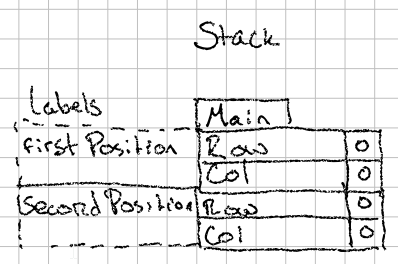 Stack
Labels
Main
first Position Row 0
Col 0
Second Position Row 0
Col 0